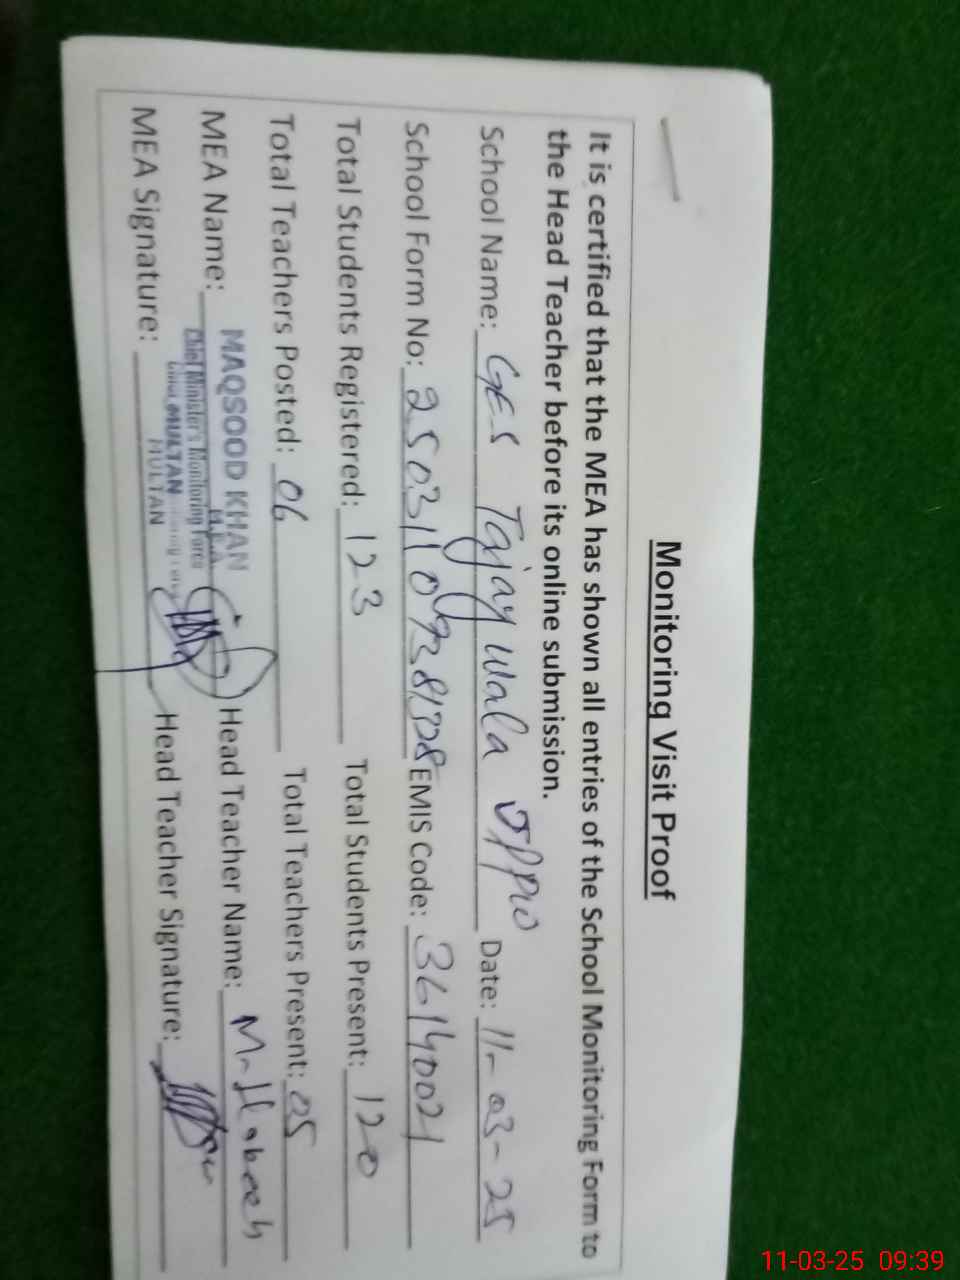 Monitoring Visit Proof
It is certified that the MEA has shown all entries of the School Monitoring Form to
the Head Teacher before its online submission.
School Name: GES Tajay wala Date: 11-03-25
School Form No: EMIS Code:
Total Students Registered: 123 Total Students Present: 120
Total Teachers Posted: 06 Total Teachers Present: 05
MEA Name: MAQSOOD KHAN Head Teacher Name:
M.E.A
Chief Minister's Monitoring Force
MULTAN
MULTAN
MEA Signature: Head Teacher Signature:
11-03-25 09:39